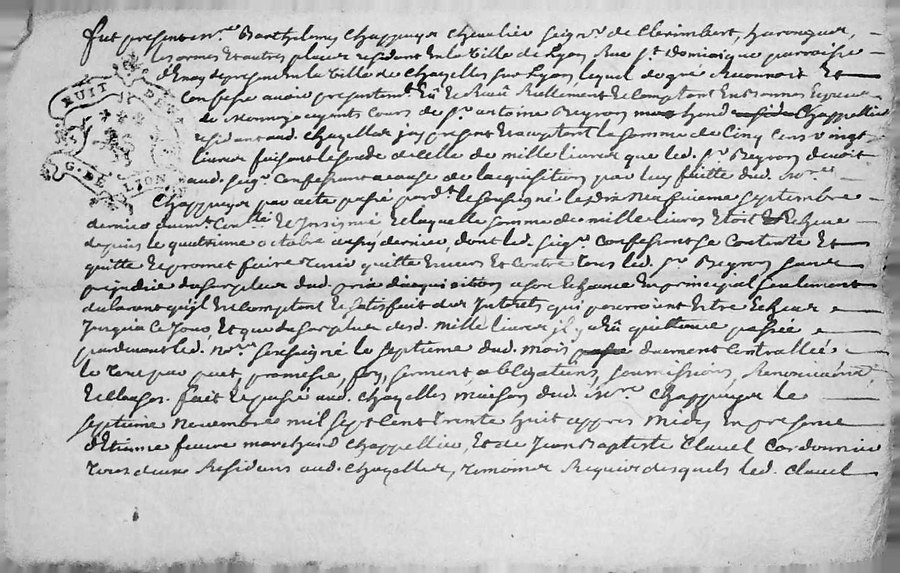 fut present m.re Barthelemy Chappuys Chevalier seign.r de Clerimbert, haronguer,
les ormes et autres places residant en la ville de Lyon Rue S.t Dominique parroisse
d'Enay de present en la ville de Chazelles sur Lyon lequel de gré Reconnoit Et
Confesse avoir presentem.t Eû et Receû Reellement et Comptant en bonnes Especes
de monnoye ayants Cours de S.r antoine Beyron marchand Chappellier
residant aud. Chazelles icy present et acceptant la somme de Cinq Cens vingt
livres faisant le solde de celle de mille livres que led. S.r Beyron devoit
aud. seig.r Confessant a cause de lacquisition par luy faitte dud. m.re
Chappuys par acte passé pard.t le soussigné le dix neufvieme septembre
dernier Controllé et Insinué, et laquelle somme de mille livres Etoit Echeue
depuis le quatrieme octobre aussy dernier, dont led. seig.r Confessant se Contente Et
quitte et promet faire tenir quitte Envers Et Contre tous led. S.r Beyron sans
prejudice du surplus dud. prix dacquisition a son Echeance En principal seulement
declarant qu'il En Comptant et satisfait des Interets qui pourroient Estre Echeus
jusqu'a Ce jour, Et que du surplus desd. mille livres il y a Eû quittance passée
pardevant led. No.re soussigné le septieme dud. mois duement Controllée
le tout par pact promesse, foy, serment, obligations, soumissions, Renonciâons
et clauses. fait et passé aud. Chazelles maison dud. m.re Chappuys le
septieme Novembre mil sept Cent trente huit appres midy En presence
d'Etienne favre marchand Chappellier, Et de Jean Baptiste Clavel Cordonnier
tous deux Residens aud. Chazelles, temoins Requis desquels led. Clavel
HUIT DEN.
G. DE LYON